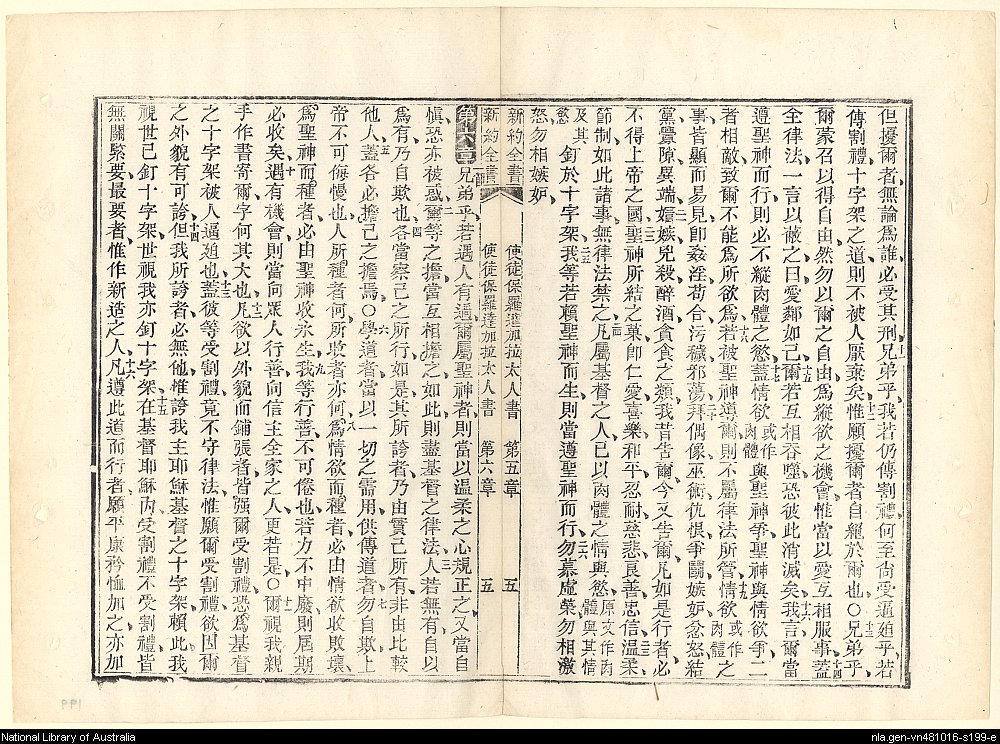 但擾爾者無論爲誰必受其刑兄弟乎十一我若仍傳割禮何至尙受逼廹乎若
傳割禮十字架之道則不被人厭棄矣十二惟願擾爾者自絕於爾也〇十三兄弟乎
爾蒙召以得自由然勿以爾之自由爲縱欲之機會惟當以愛互相服事十四蓋
全律法一言以蔽之曰愛鄰如己十五爾若互相吞噬恐彼此消滅矣十六我言爾當
遵聖神而行則必不縱肉體之慾十七蓋情欲或作肉體與聖神爭聖神與情欲爭二
者相敵致爾不能爲所欲爲十八若被聖神導爾則不屬律法所管十九情欲或作肉體之
事皆顯而易見卽姦淫苟合污穢邪蕩二十拜偶像巫術仇恨爭鬬嫉妒忿怒結
黨釁隙異端二一媢嫉兇殺醉酒貪食之類我昔告爾今又告爾凡如是行者必
不得上帝之國二二聖神所結之菓卽仁愛喜樂和平忍耐慈悲良善忠信二三温柔
節制如此諸事無律法禁之二四凡屬基督之人已以肉體之情與慾原文作肉體與其情
及其慾釘於十字架二五我等若賴聖神而生則當遵聖神而行二六勿慕虛榮勿相激
怒勿相嫉妒
新約全書 使徒保羅達加拉太人書 第五章 五
新約全書 使徒保羅達加拉太人書 第六章 五
第六章一兄弟乎若遇人有過爾屬聖神者則當以温柔之心規正之又當自
愼恐亦被惑二爾等之擔當互相擔之如此則盡基督之律法三人若無有自以
爲有乃自欺也四各當察己之所行如是其所誇者乃由實己所有非由比較
他人五蓋各必擔己之擔焉〇六學道者當以一切之需用供傳道者七勿自欺上
帝不可侮慢也人所種者何所收者亦何八爲情欲而種者必由情欲收敗壞
爲聖神而種者必由聖神收永生九我等行善不可倦也若力不中廢則屆期
必收矣十遇有機會則當向眾人行善向信主全家之人更若是〇十一爾視我親
手作書寄爾字何其大也十二凡欲以外貌而鋪張者皆强爾受割禮恐爲基督
之十字架被人逼廹也十三蓋彼等受割禮竟不守律法惟願爾受割禮欲因爾
之外貌有可誇十四但我所誇者必無他惟誇我主耶穌基督之十字架賴此我
視世已釘十字架世視我亦釘十字架十五在基督耶穌內受割禮不受割禮皆
無關緊要最要者惟作新造之人十六凡遵此道而行者願平康矜恤加之亦加
National Library of Australia
nla.gen-vn481016-s199-e